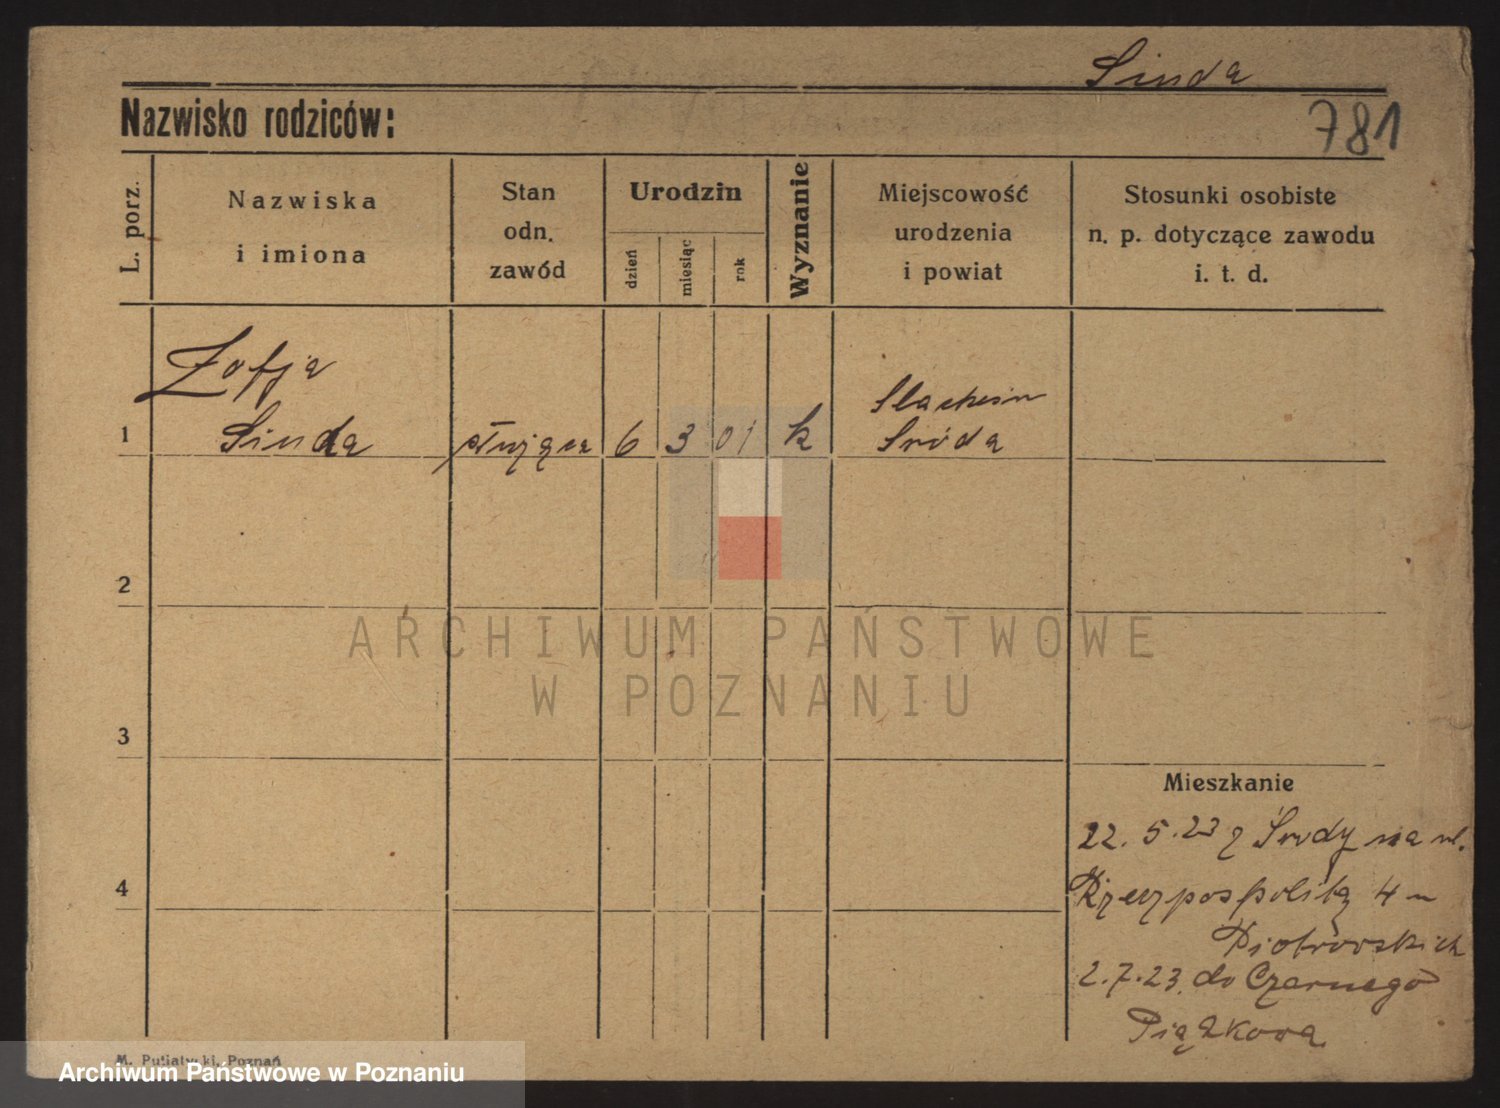 Sinda
Nazwisko rodziców:
781
L. porz.
Nazwiska
i imiona
Stan
odn.
zawód
Urodzin
dzień
miesiąc
rok
Wyznanie
Miejscowość
urodzenia
i powiat
Stosunki osobiste
n. p. dotyczące zawodu
i. t. d.
Zofja
1 Sinda służąca 6 3 01 k Slachcin
Sróda
2
3
4
ARCHIWUM PAŃSTWOWE
W POZNANIU
Mieszkanie
22. 5. 23 z Srody na ul.
Rzeczpospolitą 4 u
Piotrowskich
2.7.23. do Czarnego
Piątkowa
M. Putiatycki, Poznań
Archiwum Państwowe w Poznaniu